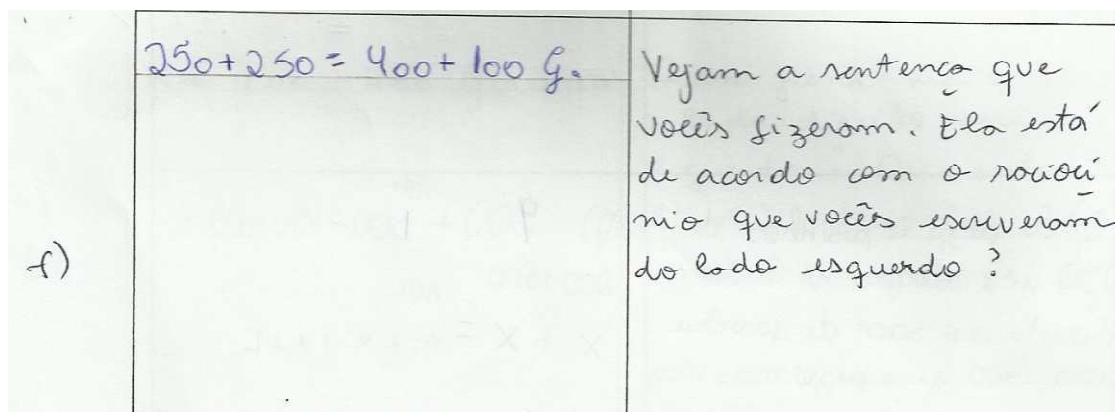 250+250 = 400+100 g.
Vejam a sentença que
vocês fizeram. Ela está
de acordo com o raciocí
nio que vocês escreveram
do lado esquerdo?
f)